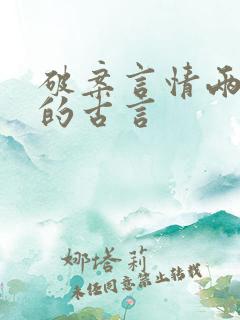 破案言情两
的古言
娜塔莉
未经同意禁止转载